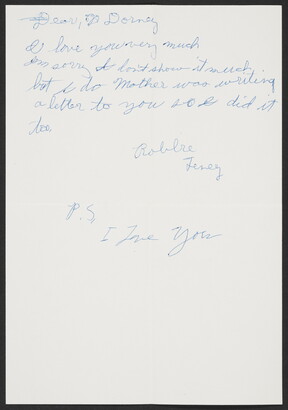 Dear, Dorney
I love you very much
Im sorry I dont show it much,
but I do Mother was writing
a letter to you so I did it
too
P.S,
I Love You